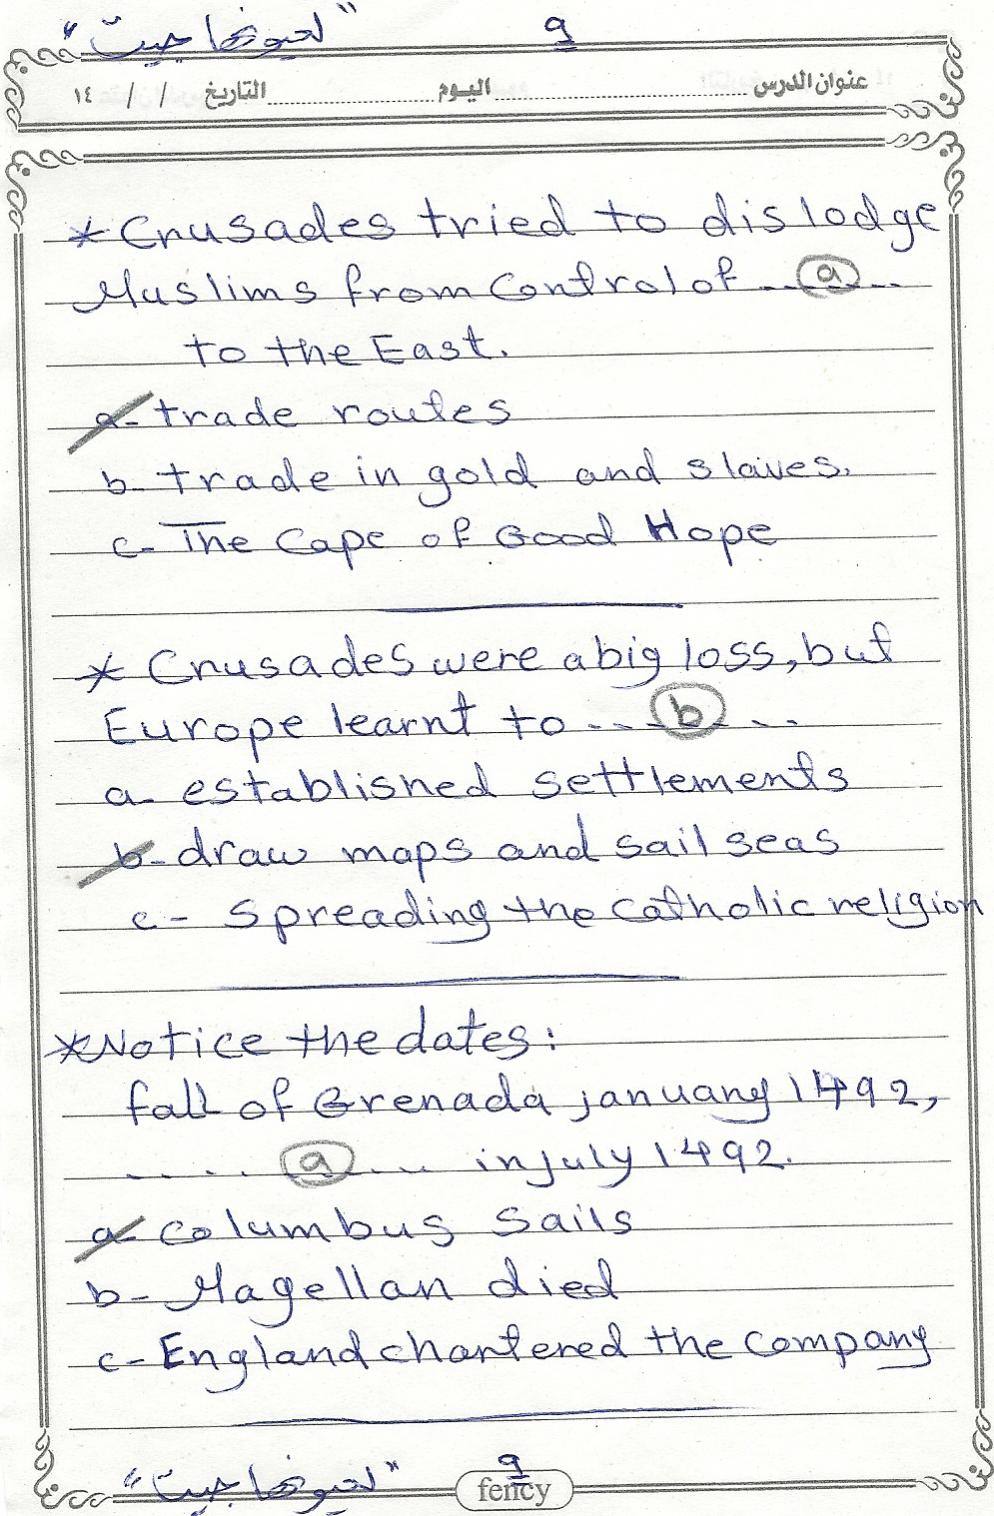 9
عنوان الدرس اليوم التاريخ / / ١٤
* Crusades tried to dislodge
Muslims from Control of ..(a)...
to the East.
a- trade routes
b- trade in gold and slaves.
c- The Cape of Good Hope
* Crusades were a big loss, but
Europe learnt to ... (b) ...
a- established settlements
b- draw maps and sail seas
c- spreading the catholic religion
* Notice the dates:
fall of Grenada january 1492,
..... (a) .... in july 1492.
a- Columbus Sails
b- Magellan died
c- England chartered the company
9
fency